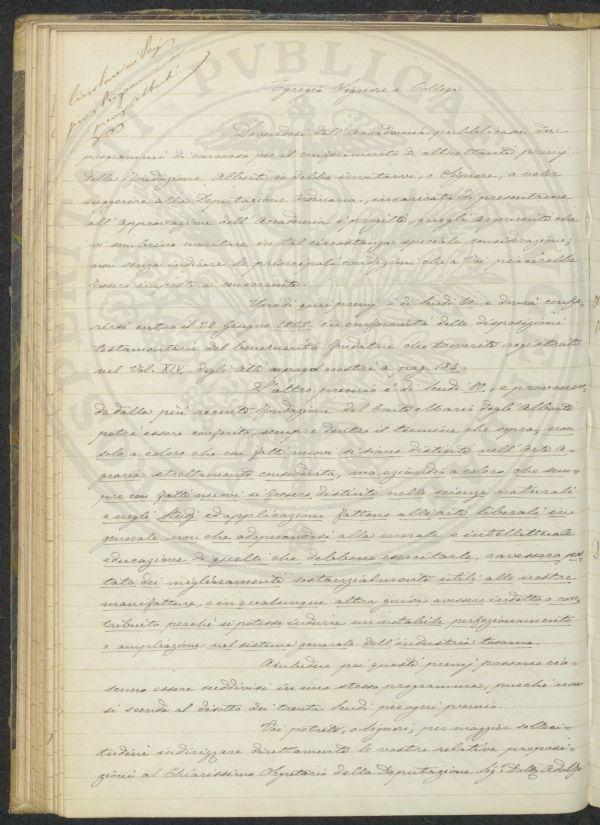 Circolare ai Soci
per i Programmi
premj Alberti
Egregio Signore e Collega
Dovendosi dall'Accademia pubblicare due
programmi di concorso per il conferimento di altrettanti premj
della fondazione Alberti io debbo invitarvi, o Signore, a voler
suggerire alla Deputazione Ordinaria, incaricata di presentarne
all'Approvazione dell'Accademia i progetti, quegli Argomenti che
vi sembrino meritare in tal circostanza speciale considerazione;
non senza indicare le principali condizioni che a Voi piacerebbe
fossero imposte ai concorrenti.
Uno di quei premj è di Scudi 60. e dovrà confe-
rirsi entro il 28 Giugno 1855. in conformità delle disposizioni
testamentarie del benemerito fondatore che troverete registrate
nel Vol. XIX. degli Atti nostri a pag. 186.
L'altro premio è di Scudi e provenien-
do dalla più recente fondazione del Conte Mario degli Alberti
potrà essere conferito, sempre dentro il termine che sopra, non
solo a coloro che con fatti nuovi si siano distinti nell'Arte a-
graria strettamente considerata, ma eziandio a coloro che sem-
pre con fatti nuovi si fossero distinti nelle scienze naturali
e negli Studj ed applicazioni fattene alle arti liberali in
generale non che adoperandosi alla morale e intellettuale
educazione di quelli che debbono esercitarle, o avessero por-
tato dei miglioramenti sostanzialmente utili alle nostre
manifatture, o in qualunque altra guisa avessero indotto o con-
tribuito perchè si potesse indurre un notabile perfezionamento
o ampliazione nel sistema generale dell'industria toscana.
Ambedue poi questi premj possono cia-
scuno essere suddivisi in uno stesso programma, purchè non
si scenda al disotto dei trenta Scudi per ogni premio.
Voi potrete, o Signore, per maggior solleci-
tudine indirizzare direttamente le vostre relative proposi-
zioni al Chiarissimo Segretario della Deputazione Sig. Dott. Adolfo